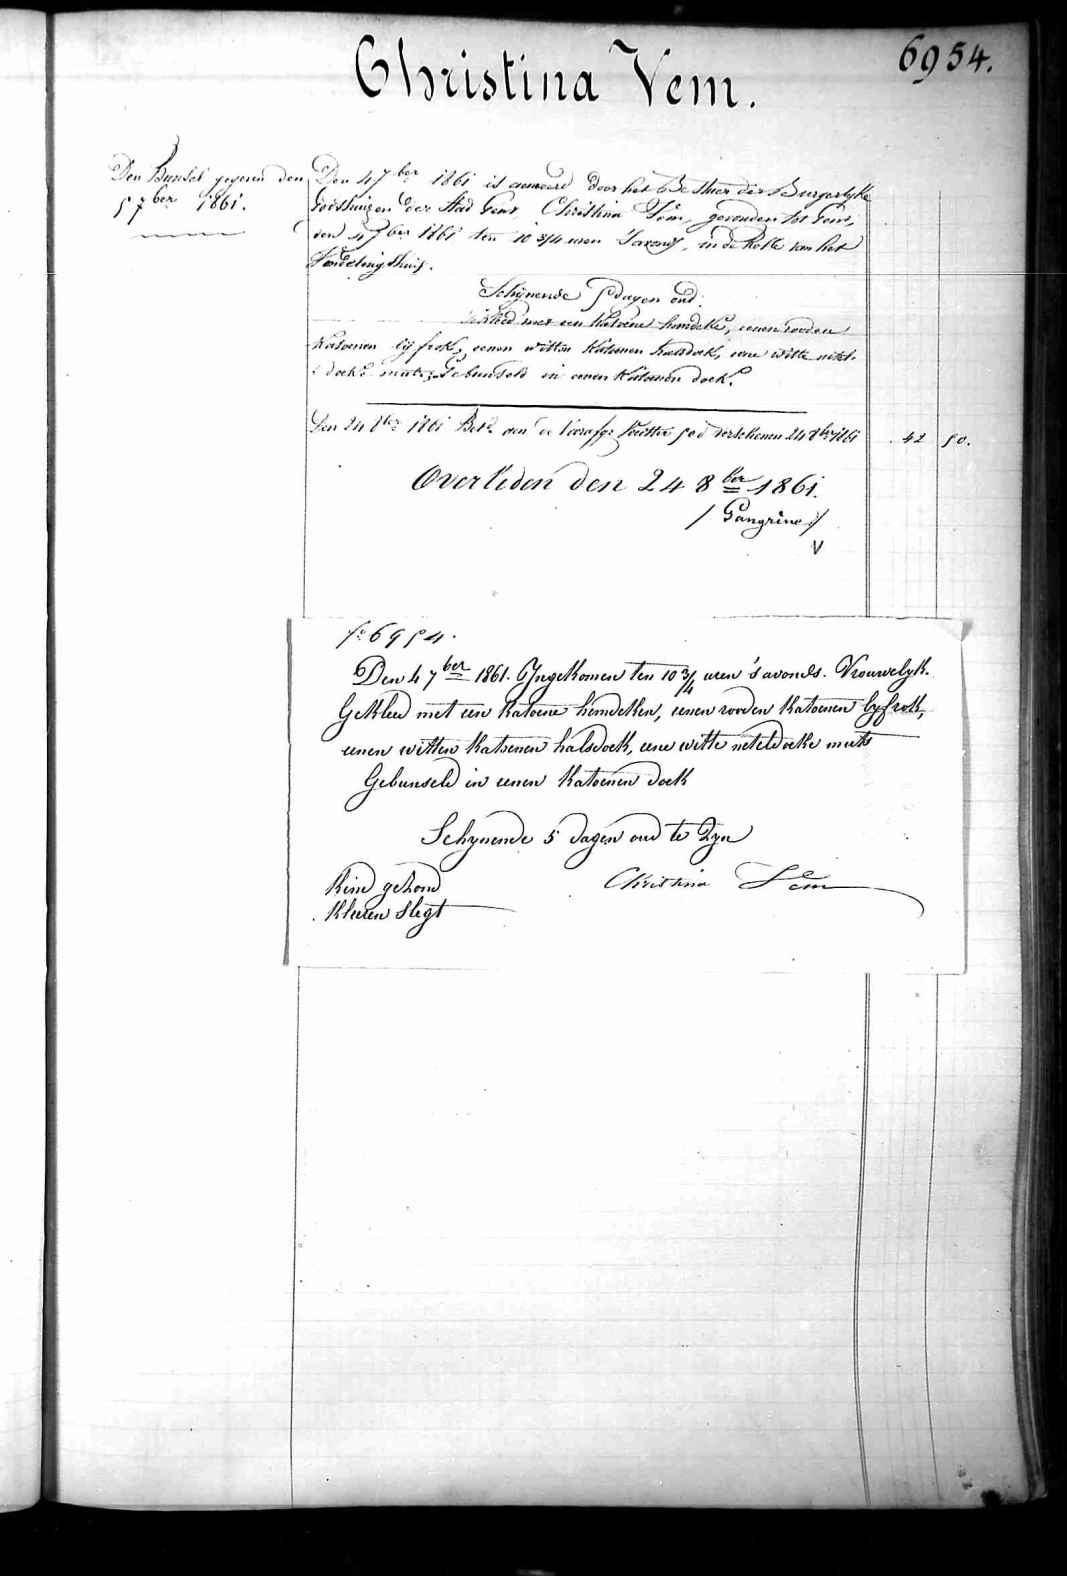 6954.
Christina Vem.
Den Bunsel gegeven den
5 7ber 1861.
Den 4 7ber 1861 is aenveerd door het Bestuer der Burgerlyke
Godshuizen der Stad Gent, Christina Vem, gevonden tot Gent,
den 4 7ber 1861 ten 10 3/4 uren 's avonds, in de Rolle van het
Vondelingshuis.
Schynende 5 dagen oud.
Gekleed met een katoene hemdeke, eenen rooden
katoenen lyfrok, eenen witten katoenen halsdoek, eene witte netel-
doeke muts, Gebunseld in eenen katoenen doek.
Den 24 8ber 1861 Bet. aen de 50 d 24 8ber 1861 42 50.
Overleden den 24 8ber 1861.
/ Gangrène /
V
f° 6954.
Den 4 7ber 1861. Ingekomen ten 10 3/4 uren 's avonds. Vrouwelyk.
Gekleed met een katoene hemdeken, eenen rooden katoenen lyfrok,
eenen witten katoenen halsdoek, eene witte neteldoeke muts
Gebunseld in eenen katoenen doek
Schynende 5 dagen oud te Zyn
Kind gezond Christina Vem
kleeren slegt